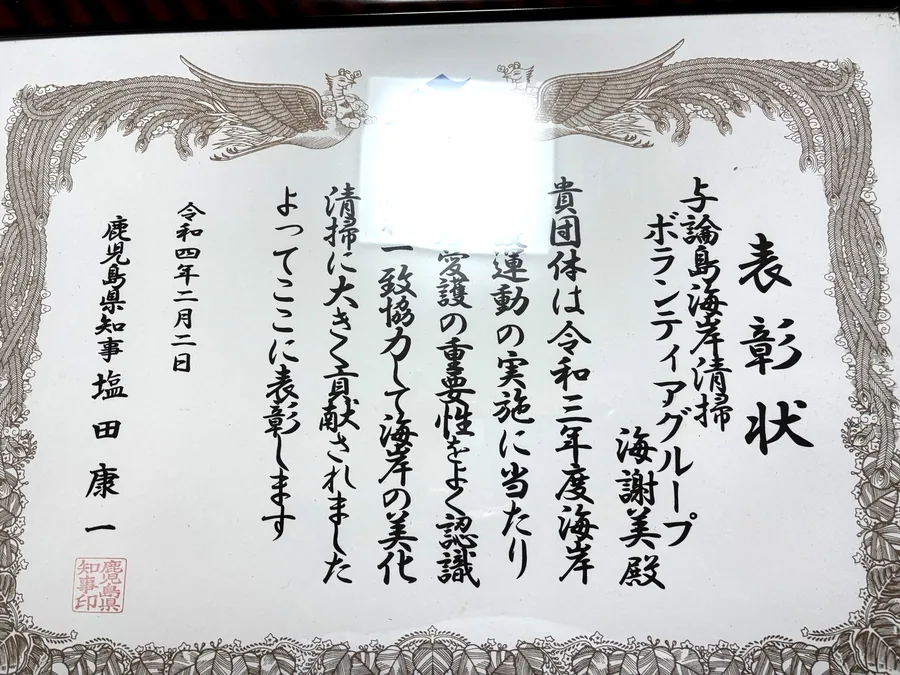 表彰状
与論島海岸清掃
ボランティアグループ
海謝美殿
貴団体は令和三年度海岸
運動の実施に当たり
愛護の重要性をよく認識
一致協力して海岸の美化
清掃に大きく貢献されました
よってここに表彰します
令和四年二月二日
鹿児島県知事 塩田康一
鹿児島県
知事印